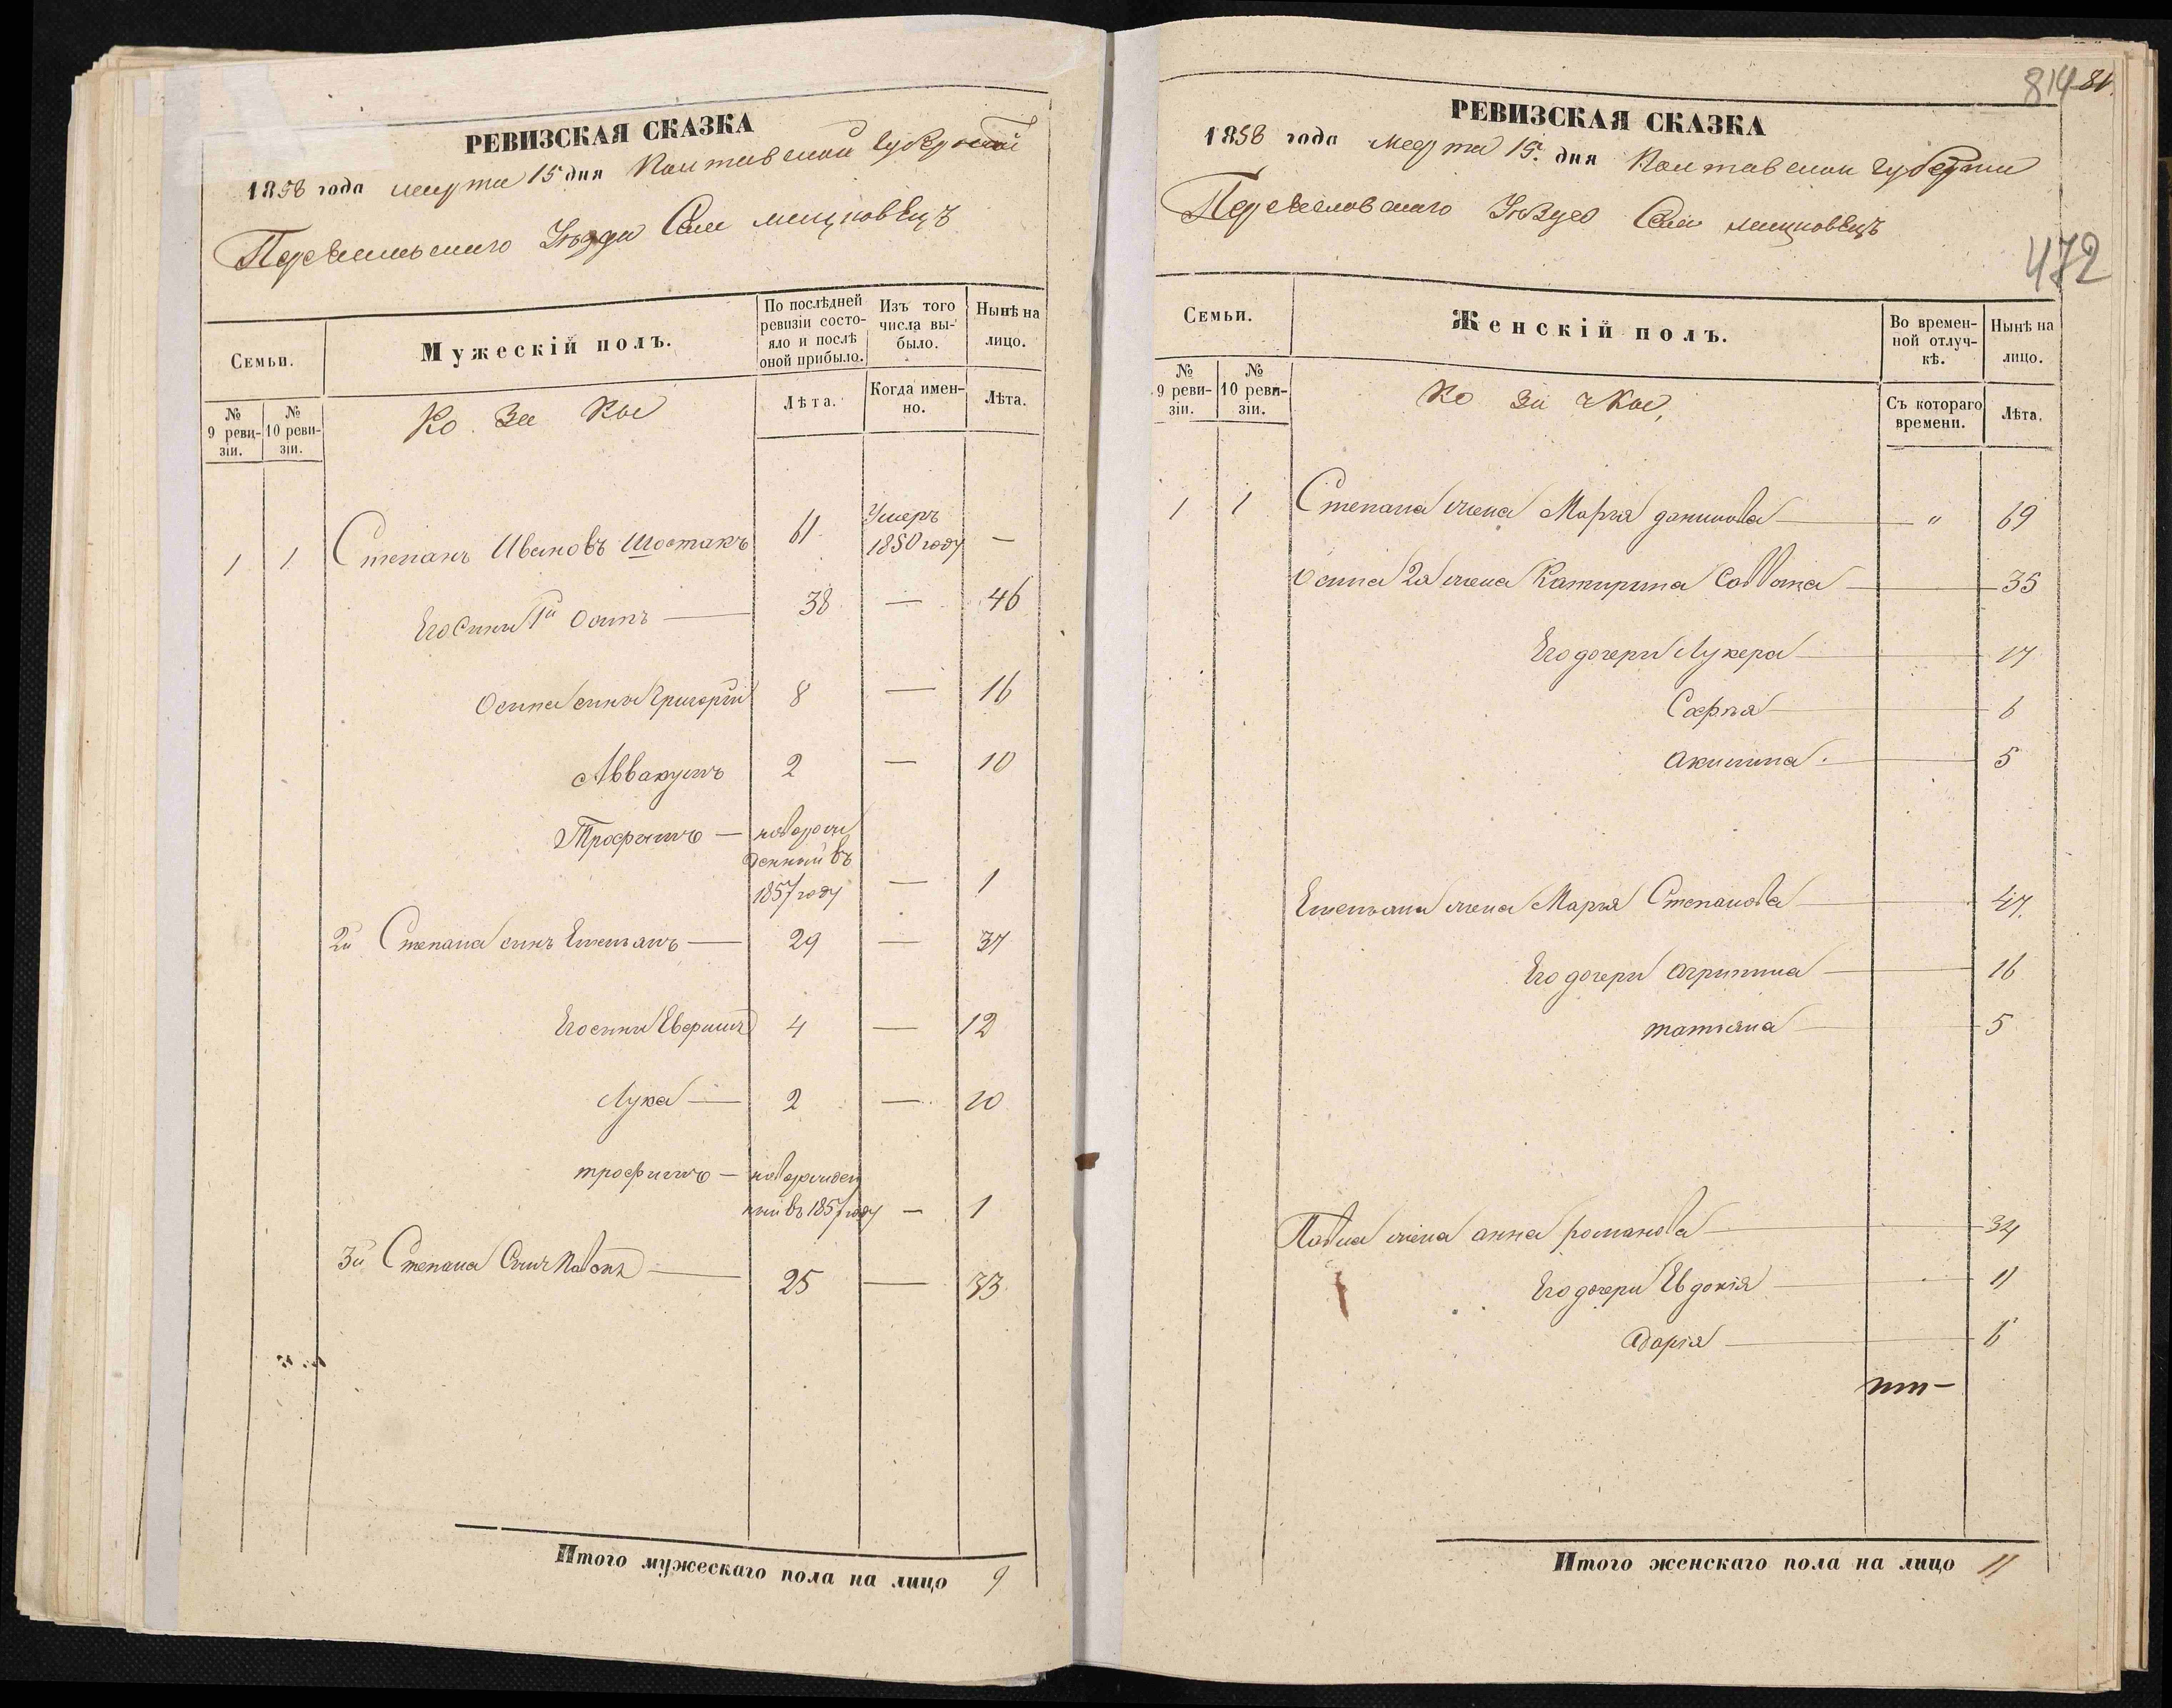 РЕВИЗСКАЯ СКАЗКА
1858 года марта 15 дня Полтавской Губерній
Переяславского Уезда Села мацковецъ
Семьи.
Мужескій полъ.
По послѣдней ревизіи состояло и послѣ оной прибыло.
Изъ того числа выбыло.
Нынѣ на лицо.
№ 9 ревизіи.
№ 10 ревизіи.
Ко за ки
Лѣта.
Когда именно.
Лѣта.
1 1 Степанъ Ивановъ Шостакъ 61 Умеръ 1850 году —
Его Сини 1й Осипъ — 38 — 46
Осипа сини Григорій 8 — 16
Аввакумъ 2 — 10
Трофимъ — новорожденный въ 1857 году — 1
2й Степана синъ Емельянъ — 29 — 37
Его сини Евфимъ 4 — 12
Лука — 2 — 10
трофимъ — новорожденный въ 1857 году — 1
3й Степана Синъ Павелъ — 25 — 33
Итого мужескаго пола на лицо 9
814 81
РЕВИЗСКАЯ СКАЗКА
1858 года марта 15 дня Полтавской губерни
Переяславского Уезда Села мацковецъ
472
Семьи.
Женскій полъ.
Во временной отлучкѣ.
Нынѣ на лицо.
№ 9 ревизіи.
№ 10 ревизіи.
Ко за чки,
Съ котораго времени.
Лѣта.
1 1 Степана жена Марья данилова — " 69
Осипа 2я жена Катирина Саввина — 35
Его дочери Лукера — 17
Софья — 6
Акилина — 5
Емельяна жена Марья Степанова — 47.
Его дочери Агрипина — 16
татьяна — 5
Павла жена анна романова — 34
Его дочери Евдокія — 11
Дарія — 6
Итого женскаго пола на лицо 11